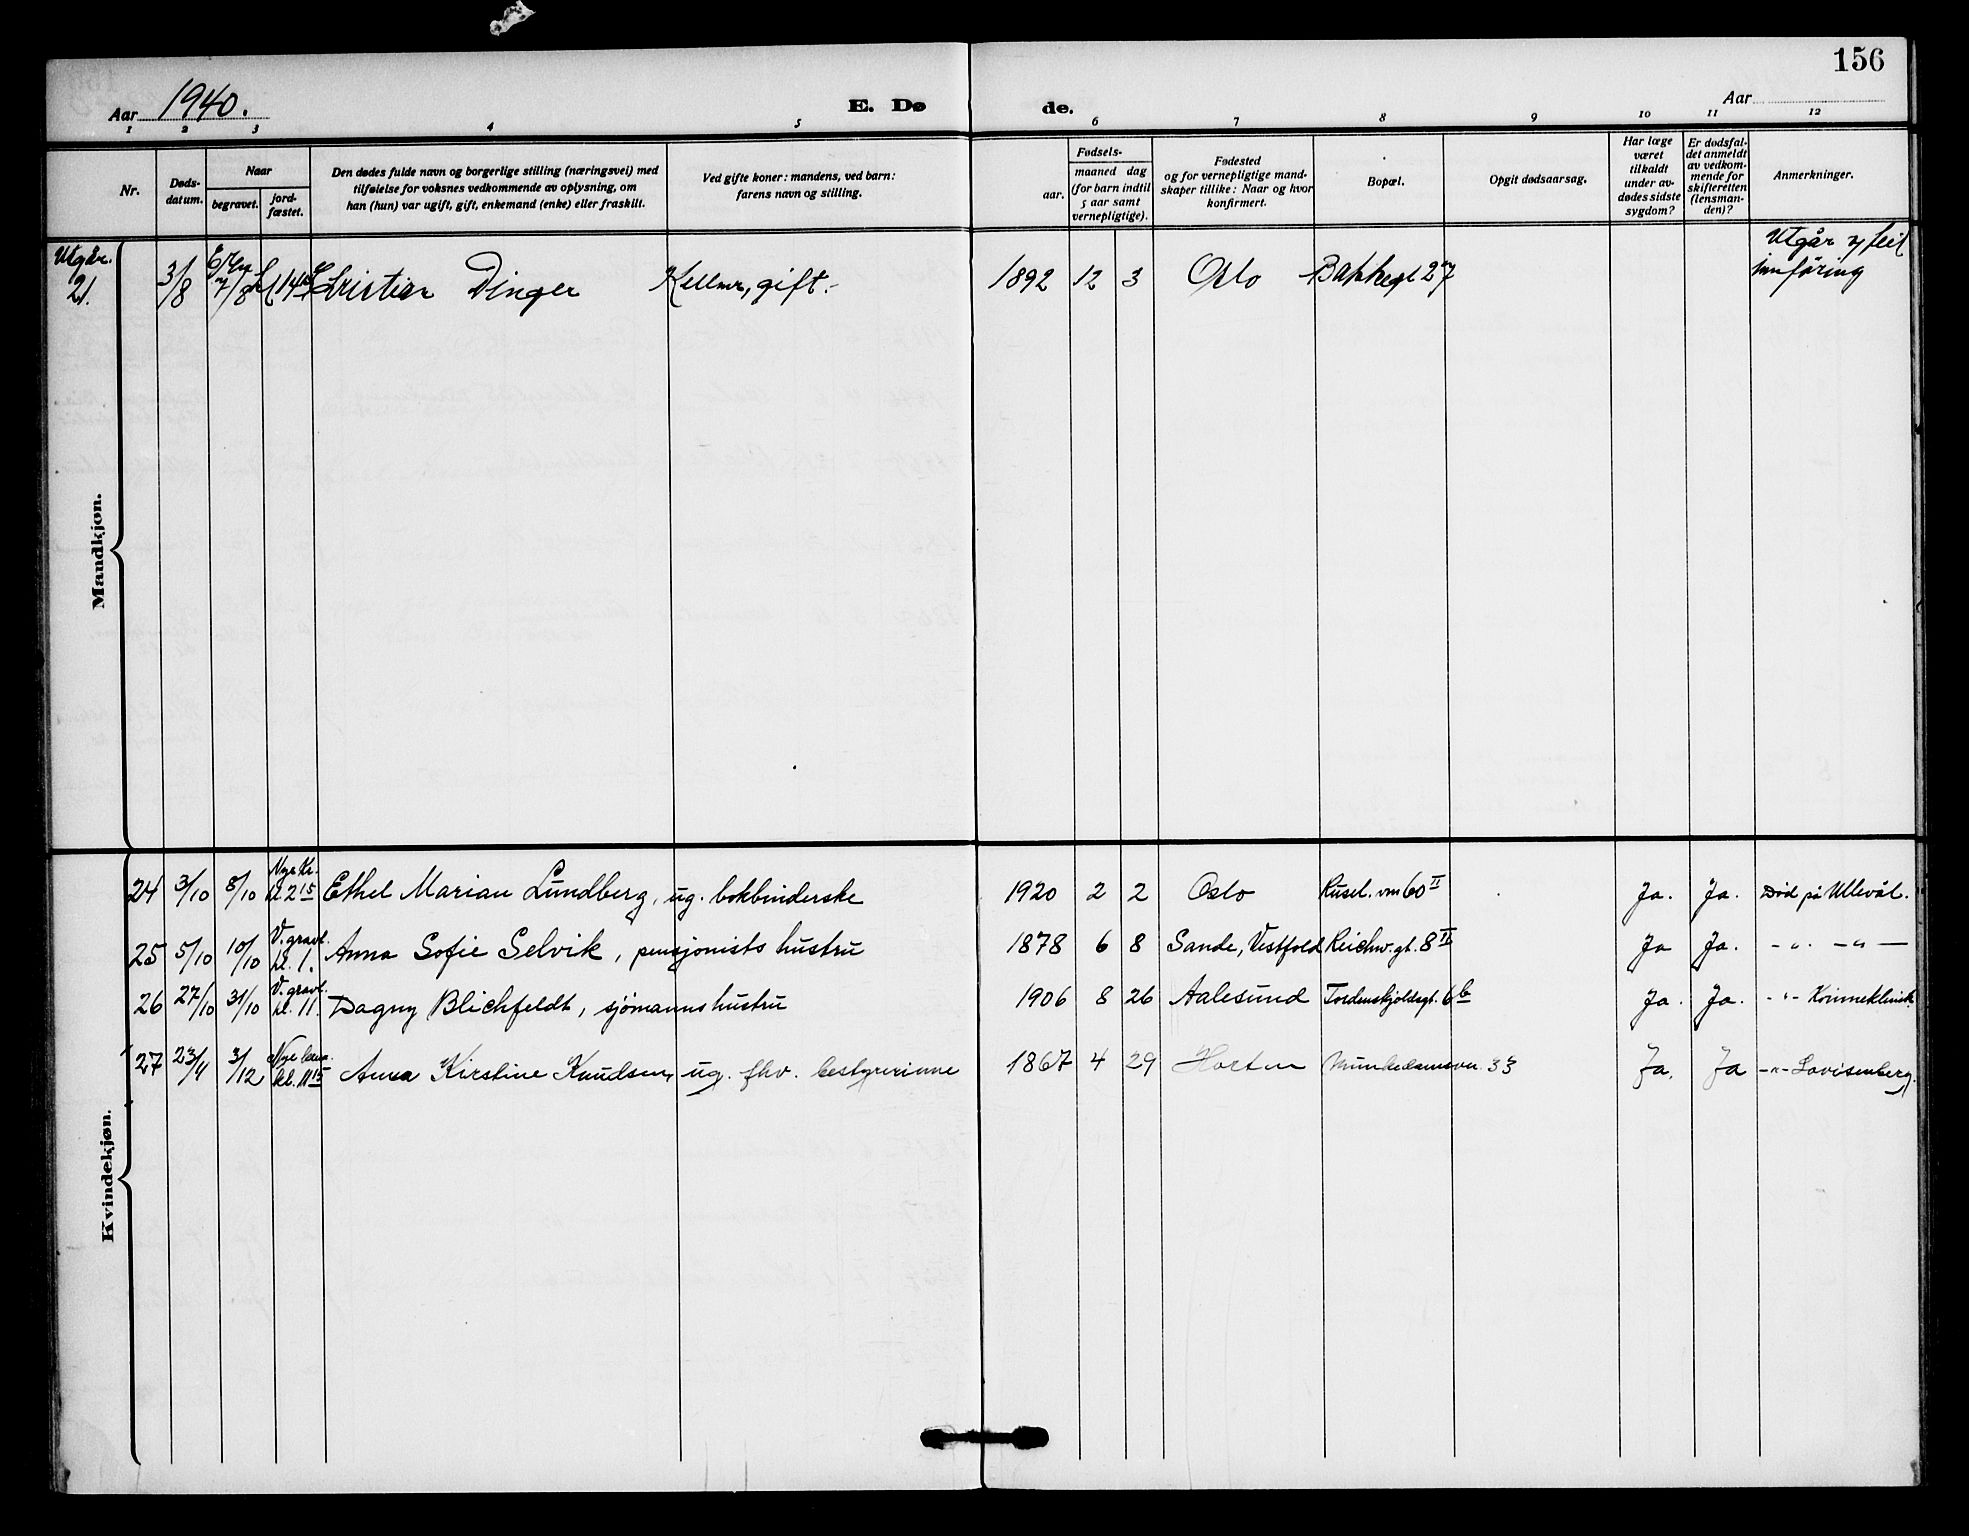 156
Aar 1940.
E. Dø
de.
Aar
1 2 3 4 5 6 7 8 9 10 11 12
Nr.
Døds-
datum.
Naar
begravet.
jord-
fæstet.
Den dødes fulde navn og borgerlige stilling (næringsvei) med
tilføielse for voksnes vedkommende av oplysning, om
han (hun) var ugift, gift, enkemand (enke) eller fraskilt.
Ved gifte koner: mandens, ved barn:
farens navn og stilling.
Fødsels-
aar.
maaned dag
(for barn indtil
5 aar samt
vernepligtige).
Fødested
og for vernepligtige mand-
skaper tillike: Naar og hvor
konfirmert.
Bopæl.
Opgit dødsaarsag.
Har læge
været
tilkaldt
under av-
dødes sidste
sygdom?
Er dødsfal-
det anmeldt
av vedkom-
mende for
skifteretten
(lensman-
den)?
Anmerkninger.
Mandkjøn.
Utgår.
21. 3/8 7/8 Christian Dinger Kellner, gift. 1892 12 3 Oslo Bakkegt 27
Utgår feil
innföring
Kvindekjøn.
24 3/10 8/10 Nye Kr. kl. 2 15 Ethel Marian Lundberg, ug. bokbinderske 1920 2 2 Oslo Rusel. vn 60 II Ja. Ja. Död på Ullevål.
25 5/10 10/10 V. gravl. kl. 1. Anna Sofie Selvik, pensjonists hustru 1878 6 8 Sande, Vestfold Reichw. gt. 8 II Ja Ja. -"- -"-
26 27/10 31/10 V. gravl. kl. 11. Dagny Blichfeldt, sjömanns hustru 1906 8 26 Aalesund Tordenskjoldsgt. 6 b Ja. Ja. -"- Kvinneklinik.
27 23/4 3/12 Nye kl. 11 15 Anna Kirstine Knudsen, ug. fhv. bestyrerinne 1867 4 29 Horten Munkedamsvn. 33 Ja. Ja -"- Lovisenberg.